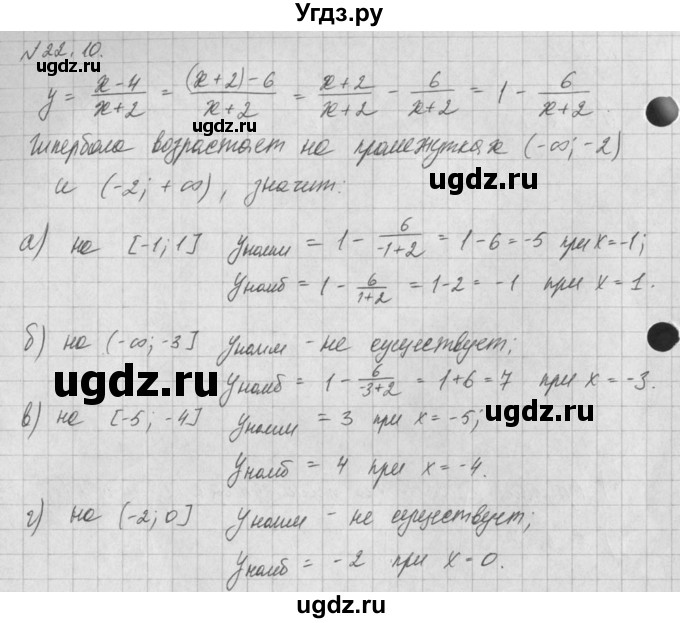 Угдз.ру
№22.10.
y = (x-4)/(x+2) = ((x+2)-6)/(x+2) = (x+2)/(x+2) - 6/(x+2) = 1 - 6/(x+2).
ugdz.ru
Гипербола возрастает на промежутках (-∞; -2)
ugdz.ru
и (-2; +∞), значит:
а) на [-1; 1] yнаим = 1 - 6/(-1+2) = 1-6 = -5 при x=-1;
ugdz.ru
yнаиб = 1 - 6/(1+2) = 1-2 = -1 при x = 1.
б) на (-∞; -3] yнаим - не существует;
ugdz.ru
ugdz.ru
yнаиб = 1 - 6/(-3+2) = 1+6 = 7 при x = -3.
в) на [-5; -4] yнаим = 3 при x = -5;
ugdz.ru
yнаиб = 4 при x = -4.
г) на (-2; 0] yнаим - не существует;
ugdz.ru
yнаиб = -2 при x = 0.
ugdz.ru